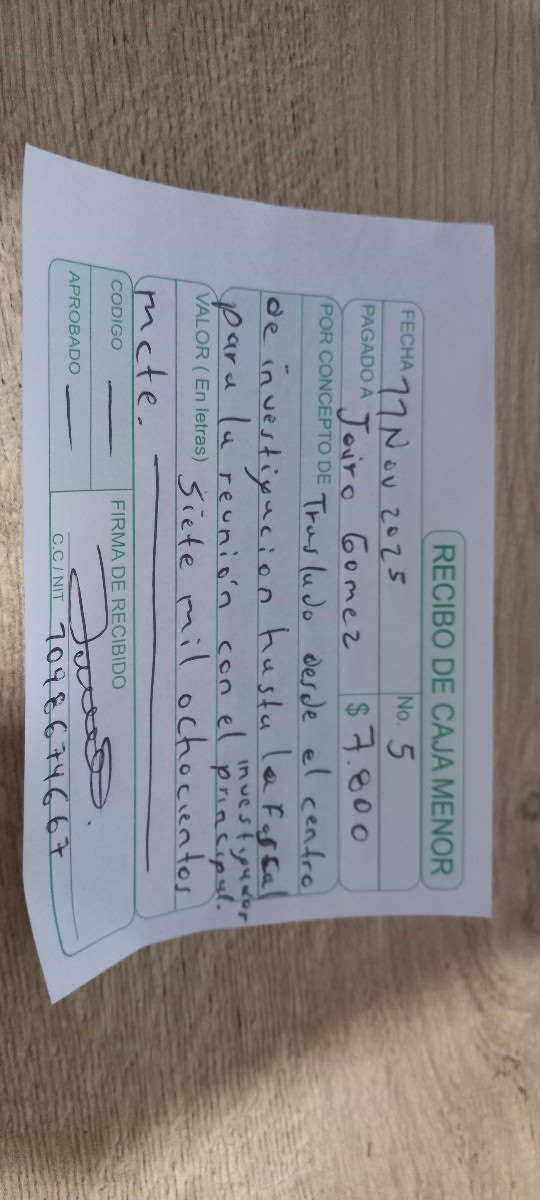 RECIBO DE CAJA MENOR
FECHA 11 Nov 2025 No. 5
PAGADO A Jairo Gomez $ 7.800
POR CONCEPTO DE Traslado desde el centro
de investigacion hasta la Foscal
para la reunión con el investigador principal.
VALOR ( En letras) Siete mil ochocientos
mcte.
CODIGO — FIRMA DE RECIBIDO
APROBADO —
C.C / NIT 1098674667